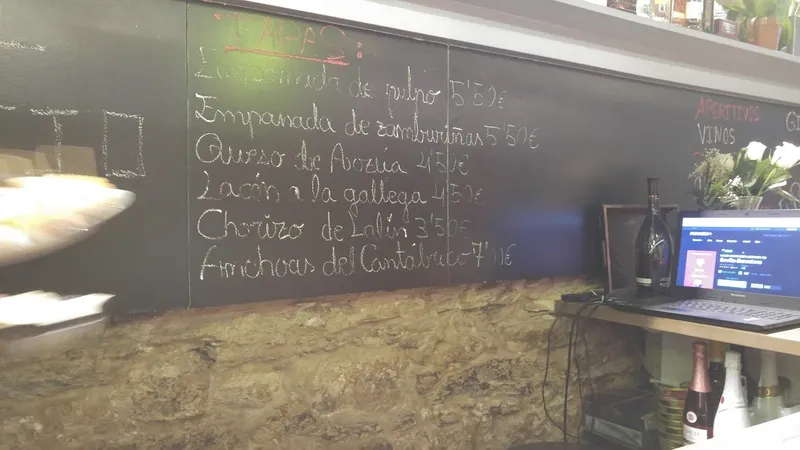 TAPAS:
Empanada de pulpo 5'50€
Empanada de zamburiñas 5'50€
Queso de Arzúa 4'50€
Lacón a la gallega 4'50€
Chorizo de Lalín 3'50€
Anchoas del Cantábrico 7'
APERITIVOS
VINOS